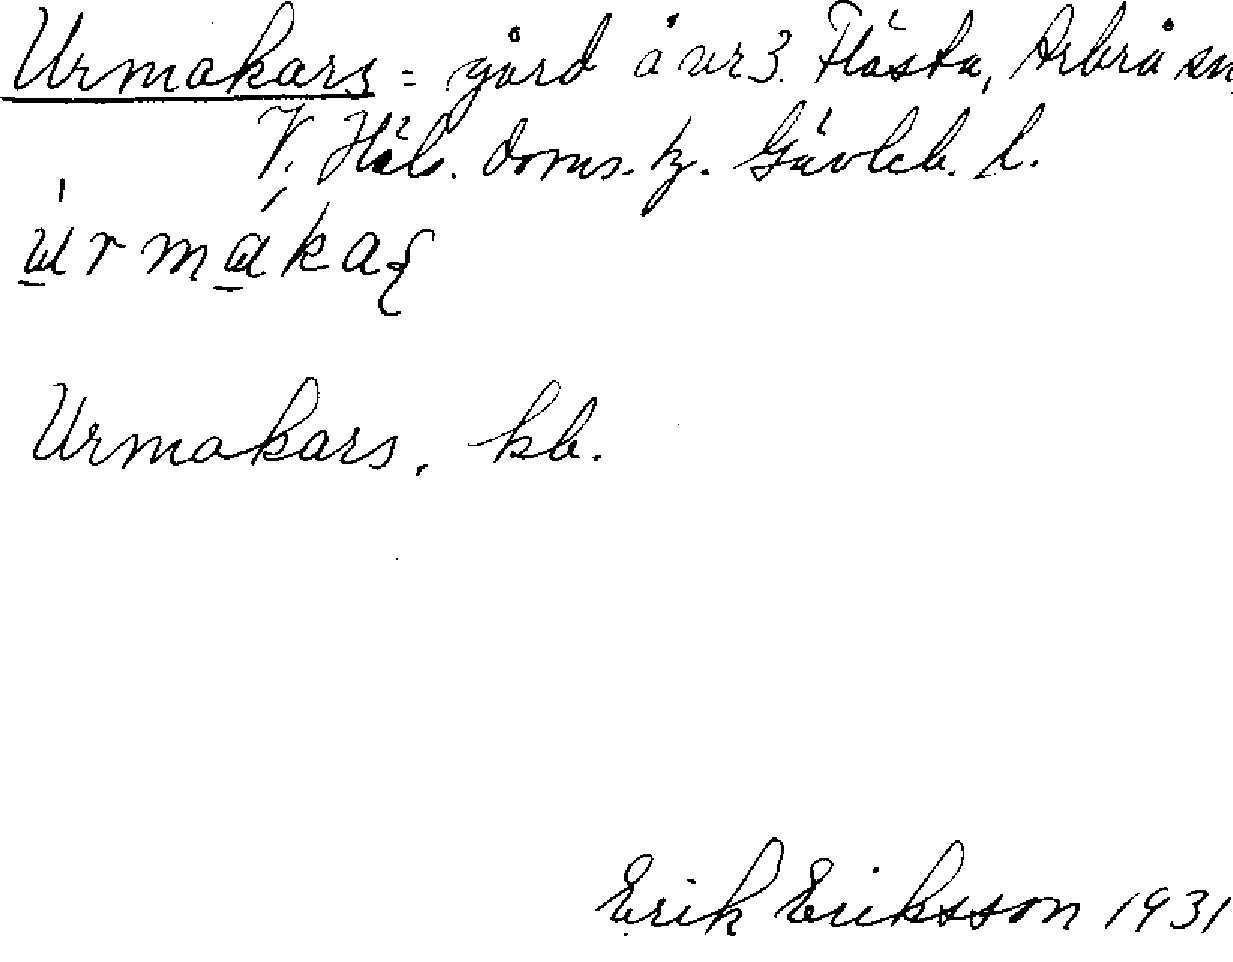 Urmakars = gård å nr 3. Flästa, Arbrå sn
V. Häls. doms. h. Gävleb. l.
Urmakars, kb.
Erik Eriksson 1931